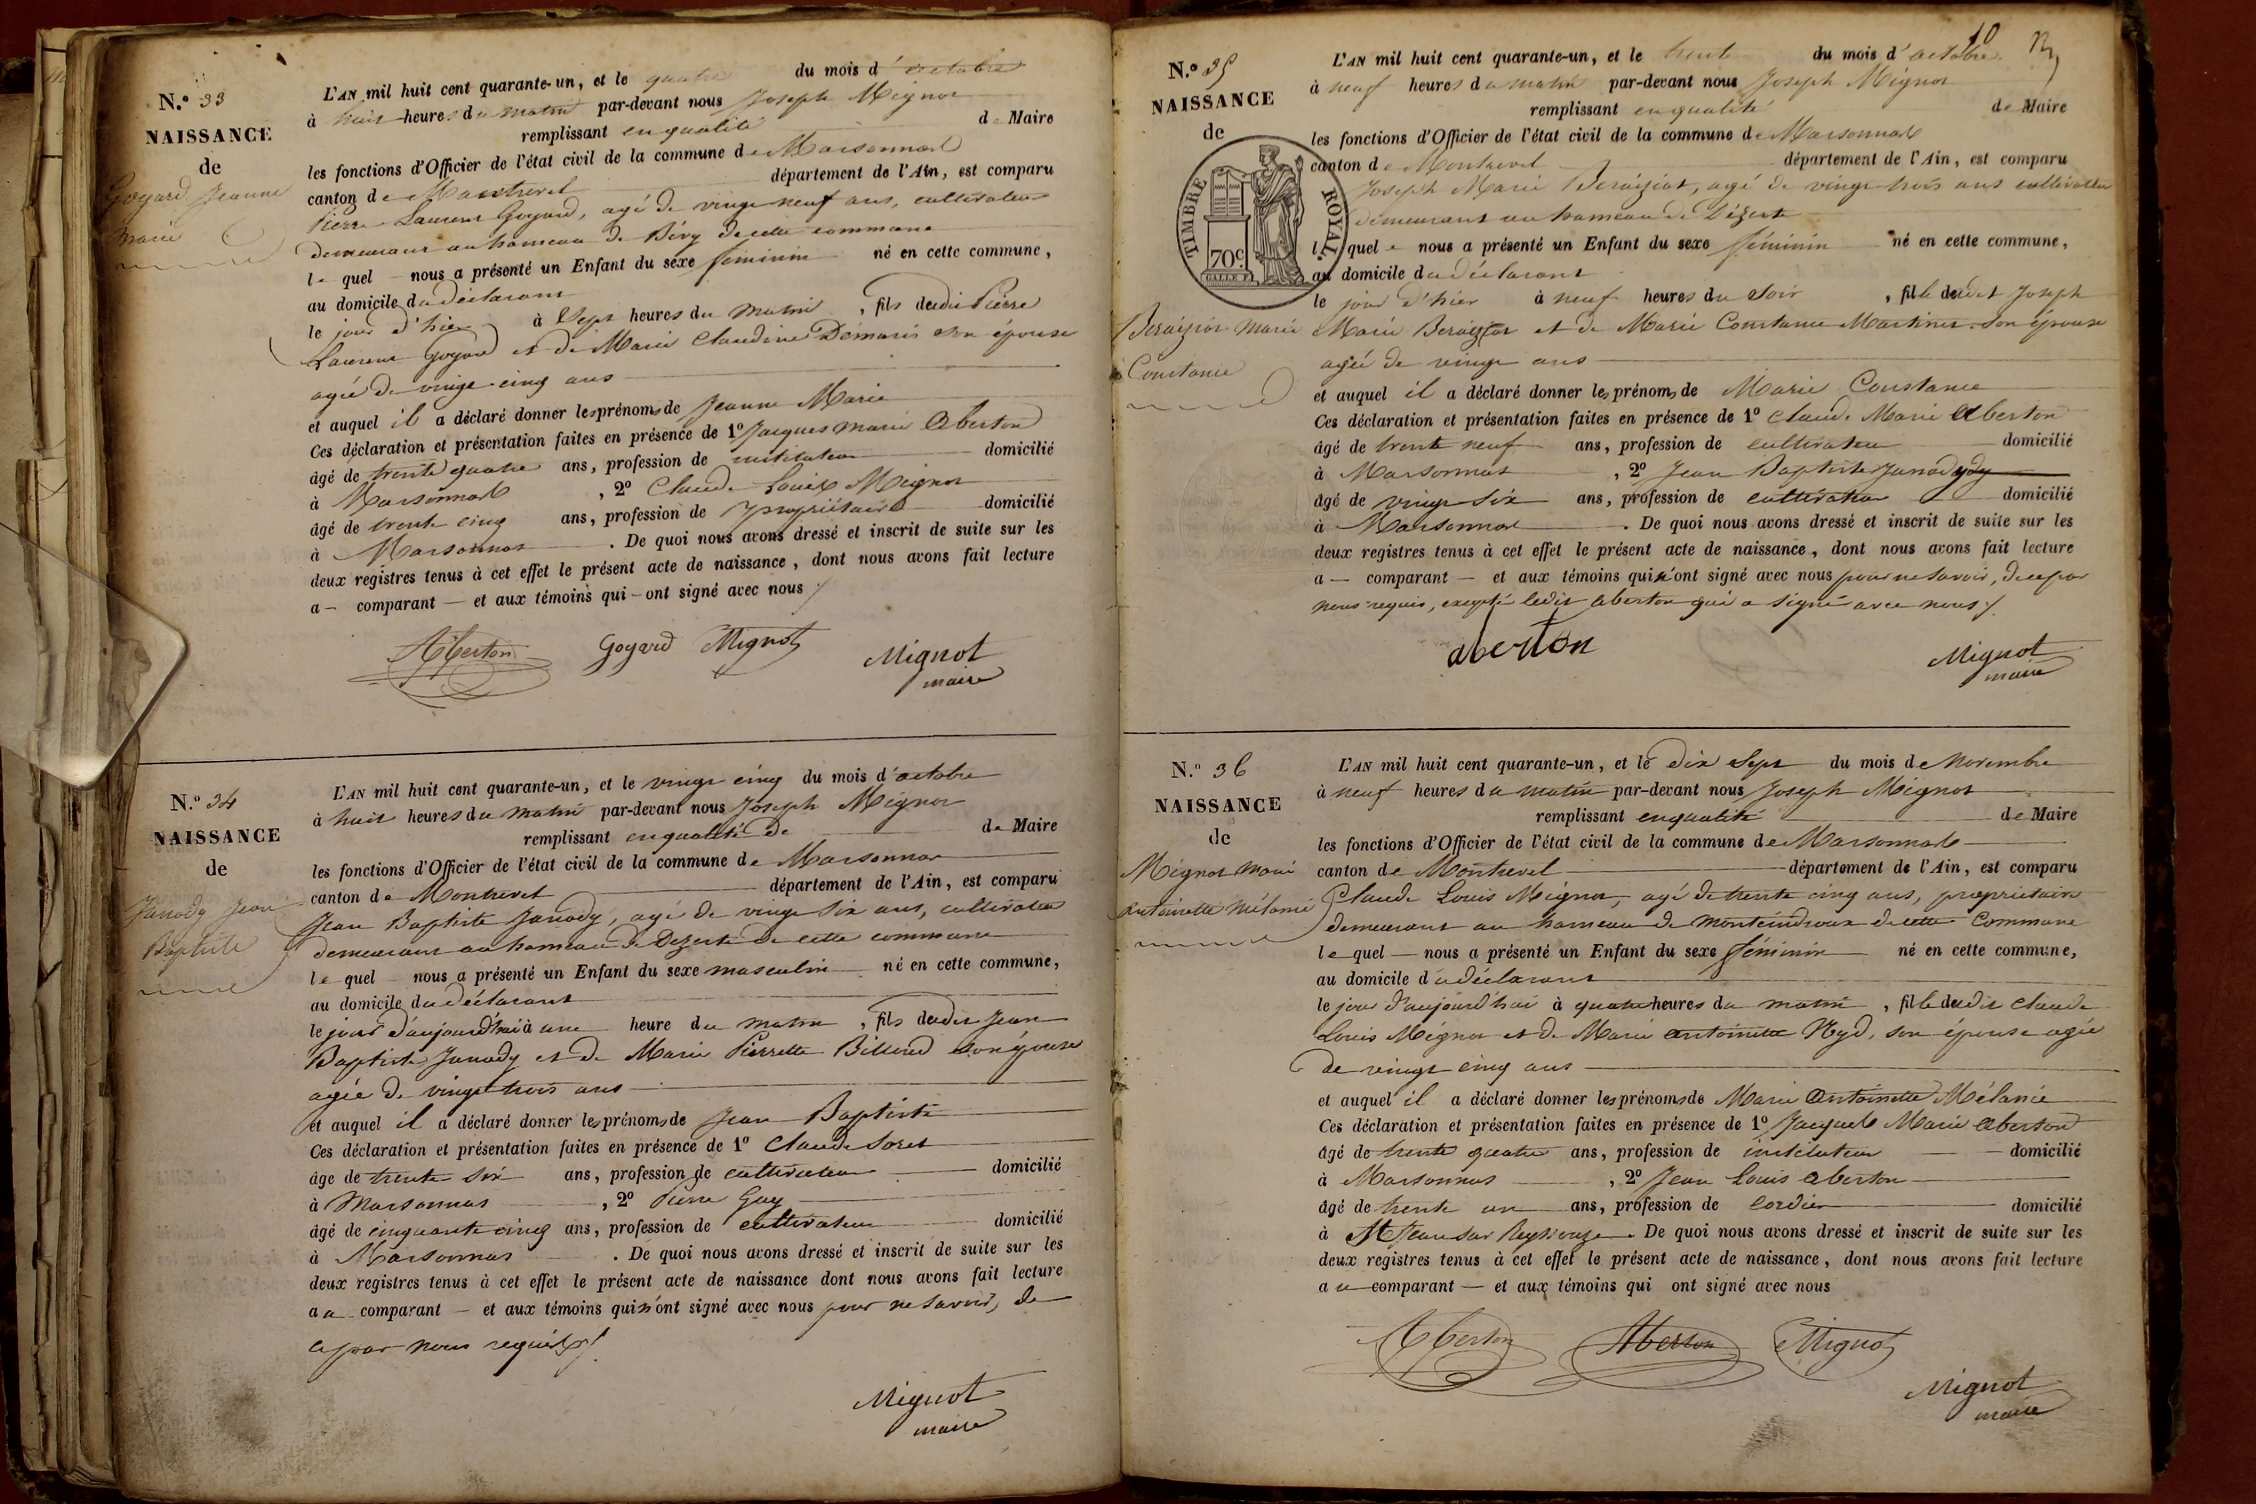 N.º 33
NAISSANCE
de
Goyard Jeanne
Marie
L'AN mil huit cent quarante-un, et le quatre du mois d'octobre
à huit heures du matin par-devant nous Joseph Mignot
remplissant en qualité de Maire
les fonctions d'Officier de l'état civil de la commune de Marsonnas
canton de Montrevel département de l'Ain, est comparu
Pierre Laurent Goyard, agé de vingt neuf ans, cultivateur
demeurant au hameau de Bévy de cette commune
le quel nous a présenté un Enfant du sexe féminin né en cette commune,
au domicile du déclarant
le jour d'hier à Sept heures du matin, fils dudit Pierre
Laurent Goyard et de Marie Claudine Demaris son épouse
agée de vingt cinq ans
et auquel il a déclaré donner les prénoms de Jeanne Marie
Ces déclaration et présentation faites en présence de 1º Jacques Marie Aberton
âgé de trente quatre ans, profession de instituteur domicilié
à Marsonnas, 2º Claude Louis Mignot
âgé de trente cinq ans, profession de propriétaire domicilié
à Marsonnas. De quoi nous avons dressé et inscrit de suite sur les
deux registres tenus à cet effet le présent acte de naissance, dont nous avons fait lecture
a – comparant — et aux témoins qui – ont signé avec nous
Aberton Goyard Mignot Mignot
maire
N.º 34
NAISSANCE
de
Janody Jean
Baptiste
L'AN mil huit cent quarante-un, et le vingt cinq du mois d'octobre
à huit heures du matin par-devant nous Joseph Mignot
remplissant en qualité de de Maire
les fonctions d'Officier de l'état civil de la commune de Marsonnas
canton de Montrevel département de l'Ain, est comparu
Jean Baptiste Janody, agé de vingt six ans, cultivateur
demeurant au hameau de Dezerte de cette commune
le quel nous a présenté un Enfant du sexe masculin né en cette commune,
au domicile du déclarant
le jour d'aujourd'hui à une heure du matin, fils dudit Jean
Baptiste Janody et de Marie Pierrette Billoud son épouse
agée de vingt trois ans
et auquel il a déclaré donner les prénoms de Jean Baptiste
Ces déclaration et présentation faites en présence de 1º Claude Soret
âge de trente six ans, profession de cultivateur domicilié
à Marsonnas, 2º Pierre Guy
âgé de cinquante cinq ans, profession de cultivateur domicilié
à Marsonnas. De quoi nous avons dressé et inscrit de suite sur les
deux registres tenus à cet effet le présent acte de naissance dont nous avons fait lecture
au comparant — et aux témoins qui n'ont signé avec nous pour ne savoir, de
ce par nous requis
Mignot
maire
10
N.º 35
NAISSANCE
de
TIMBRE ROYAL
70 c.
Beraiziat Marie
Constance
L'AN mil huit cent quarante-un, et le trente du mois d'octobre
à neuf heures du matin par-devant nous Joseph Mignot
remplissant en qualité de Maire
les fonctions d'Officier de l'état civil de la commune de Marsonnas
canton de Montrevel département de l'Ain, est comparu
Joseph Marie Beraiziat, agé de vingt trois ans cultivateur
demeurant au hameau de Dézerte
le quel nous a présenté un Enfant du sexe féminin né en cette commune,
au domicile du déclarant
le jour d'hier à neuf heures du soir, fille dudit Joseph
Marie Beraiziat et de Marie Constance Martinet son épouse
agée de vingt ans
et auquel il a déclaré donner les prénoms de Marie Constance
Ces déclaration et présentation faites en présence de 1º Claude Marie Aberton
âgé de trente neuf ans, profession de cultivateur domicilié
à Marsonnas, 2º Jean Baptiste Janody
âgé de vingt six ans, profession de cultivateur domicilié
à Marsonnas. De quoi nous avons dressé et inscrit de suite sur les
deux registres tenus à cet effet le présent acte de naissance, dont nous avons fait lecture
a — comparant — et aux témoins qui n'ont signé avec nous pour ne savoir, de ce par
nous requis, excepté ledit Aberton qui a signé avec nous
aberton
Mignot
maire
N.º 36
NAISSANCE
de
Mignot Marie
Antoinette Mélanie
L'AN mil huit cent quarante-un, et le dix Sept du mois de Novembre
à neuf heures du matin par-devant nous Joseph Mignot
remplissant en qualité de Maire
les fonctions d'Officier de l'état civil de la commune de Marsonnas
canton de Montrevel département de l'Ain, est comparu
Claude Louis Mignot, agé de trente cinq ans, propriétaire
demeurant au hameau de de cette Commune
le quel — nous a présenté un Enfant du sexe féminin né en cette commune,
au domicile du déclarant
le jour d'aujourd'hui à quatre heures du matin, fille dudit Claude
Louis Mignot et de Marie Antoinette Nyd, son épouse agée
de vingt cinq ans
et auquel il a déclaré donner les prénoms de Marie Antoinette Mélanie
Ces déclaration et présentation faites en présence de 1º Jacques Marie Aberton
âgé de trente quatre ans, profession de instituteur domicilié
à Marsonnas, 2º Jean Louis Aberton
âgé de trente un ans, profession de cordier domicilié
à St Jean sur Reyssouze. De quoi nous avons dressé et inscrit de suite sur les
deux registres tenus à cet effet le présent acte de naissance, dont nous avons fait lecture
au comparant — et aux témoins qui ont signé avec nous
Aberton Aberton Mignot
Mignot
maire